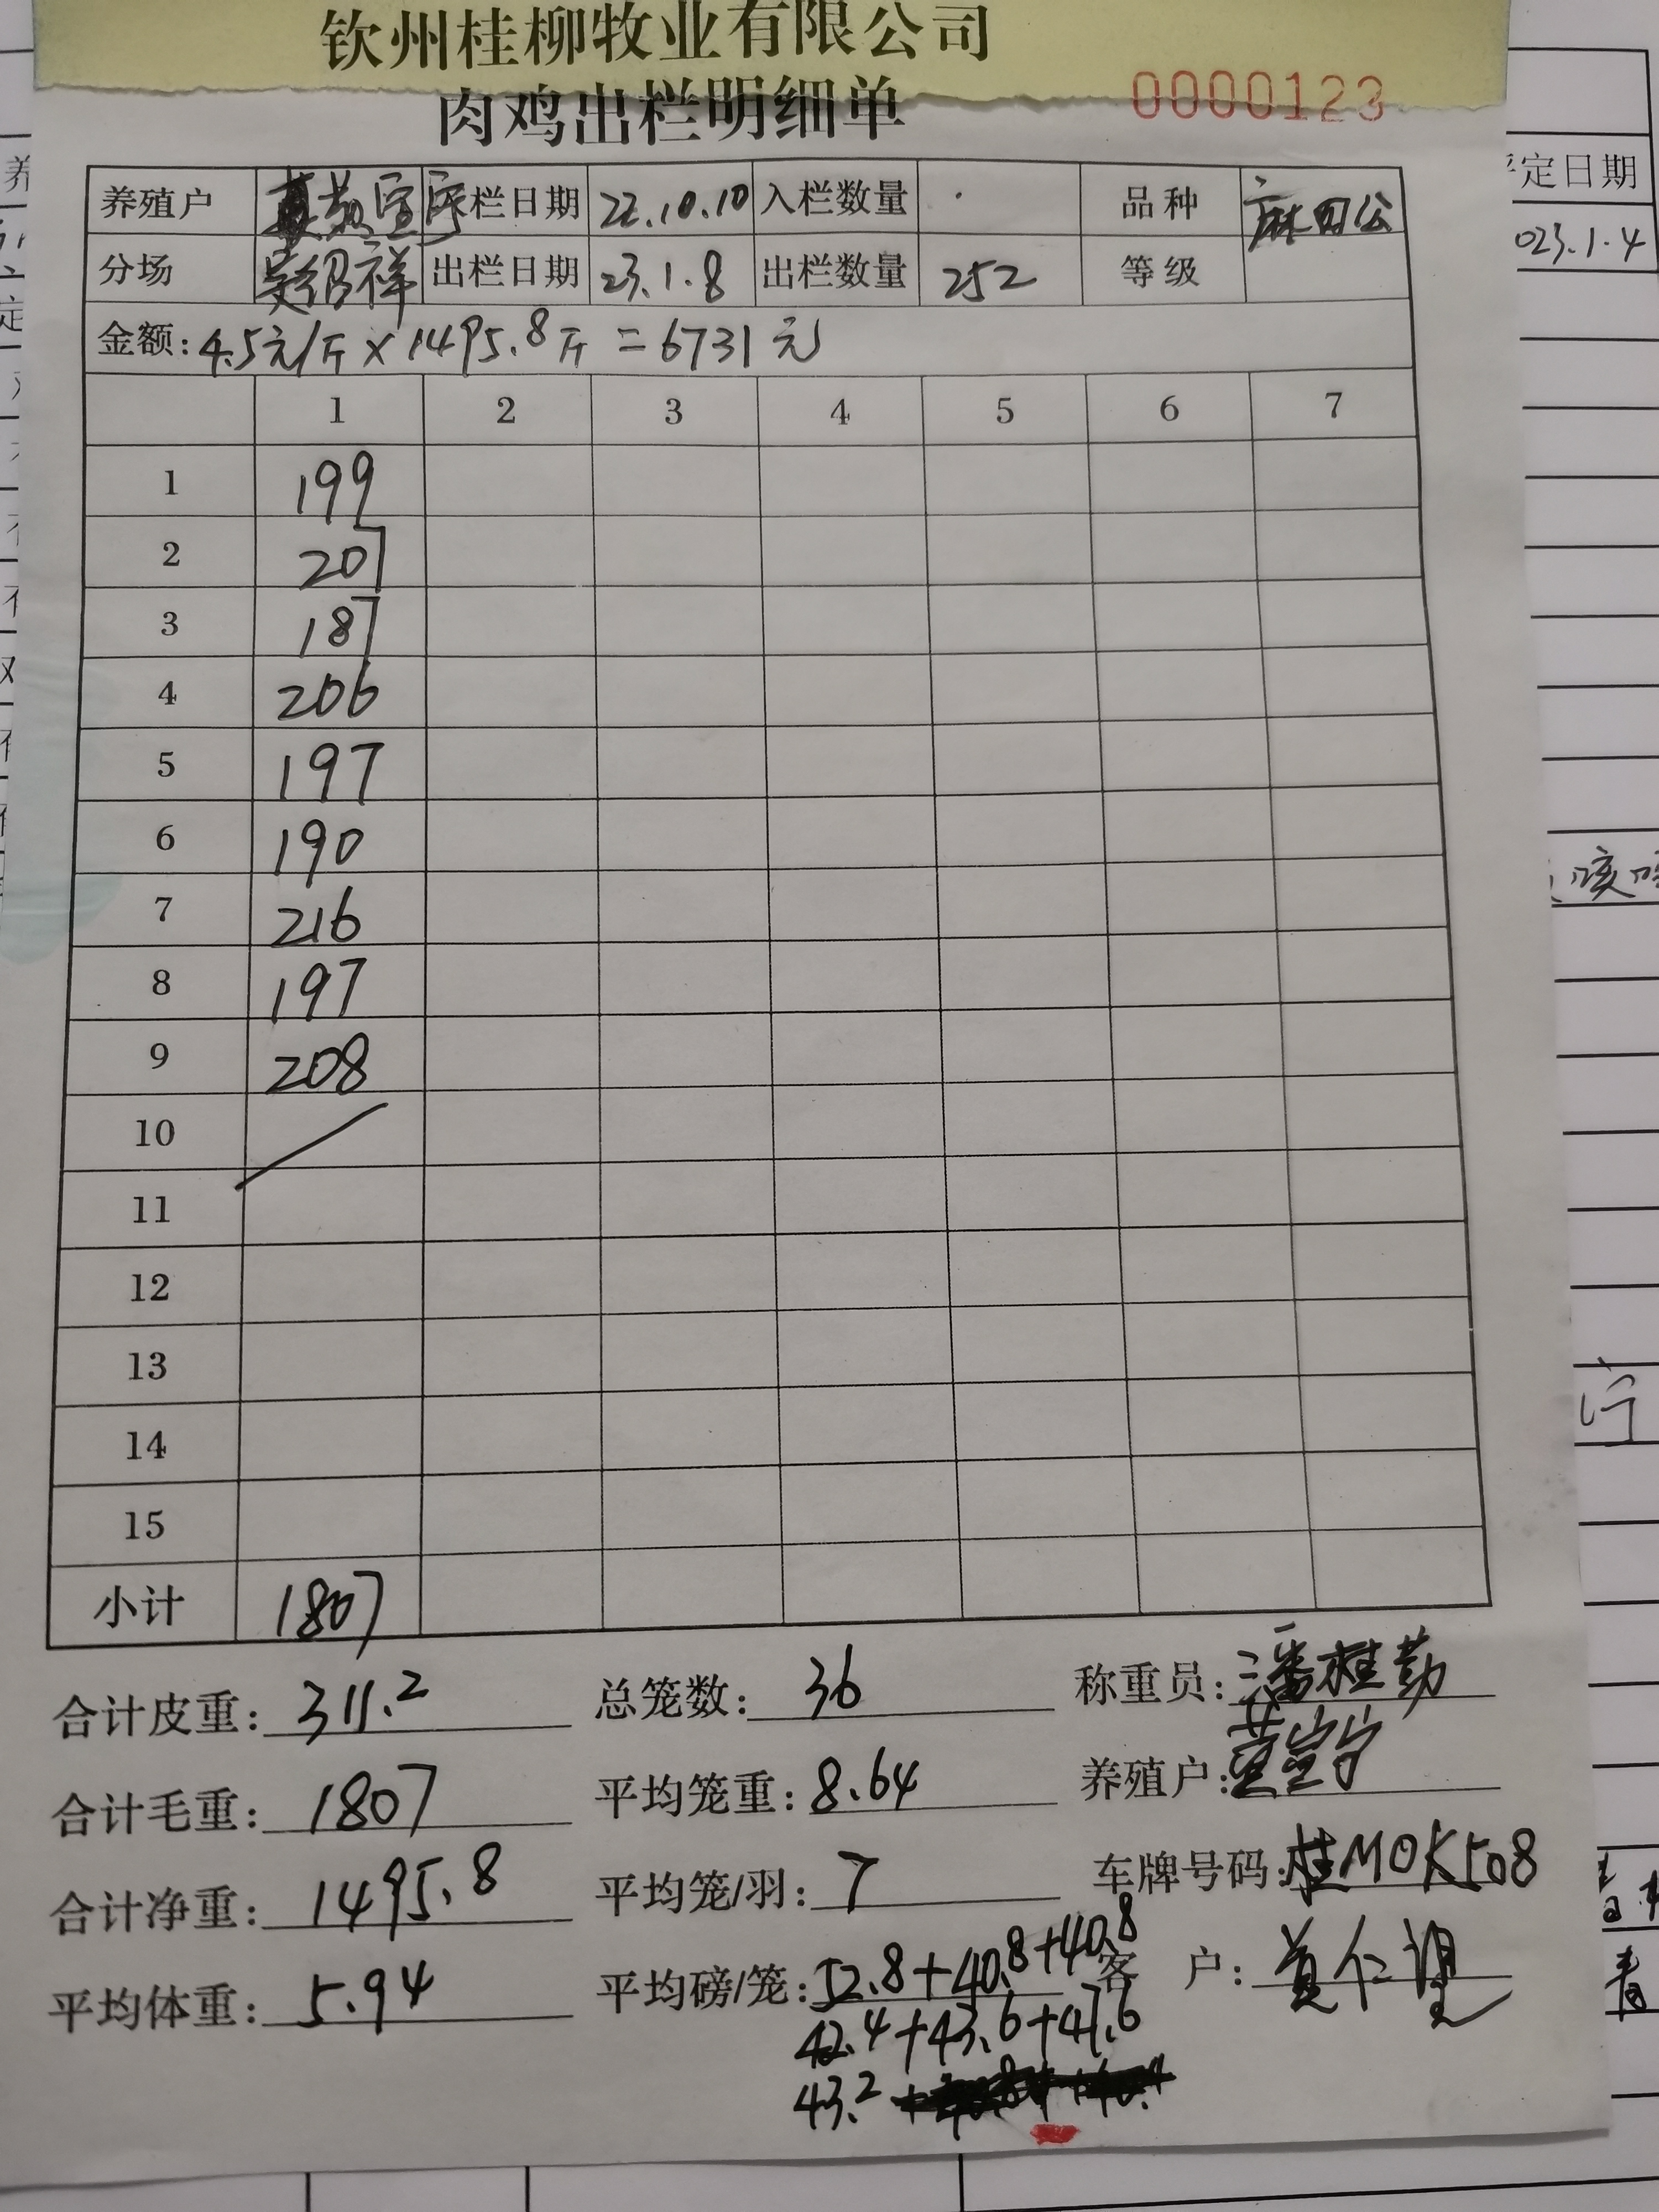 钦州桂柳牧业有限公司
肉鸡出栏明细单 0000123
养殖户 栏日期 22.10.10 入栏数量 品种 麻四公
分场 吴绍祥 出栏日期 23.1.8 出栏数量 252 等级
金额: 4.5元/斤 × 1495.8斤 = 6731元
1 2 3 4 5 6 7
1 199
2 207
3 187
4 206
5 197
6 190
7 216
8 197
9 208
10
11
12
13
14
15
小计 1807
合计皮重: 311.2 总笼数: 36 称重员: 潘桂勤
合计毛重: 1807 平均笼重: 8.64 养殖户:
合计净重: 1495.8 平均笼/羽: 7 车牌号码: 桂M0K508
平均体重: 5.94 平均磅/笼: 52.8+40.8+40.8 客 户:
42.4+43.6+47.6
43.2
评定日期
023.1.4
咳